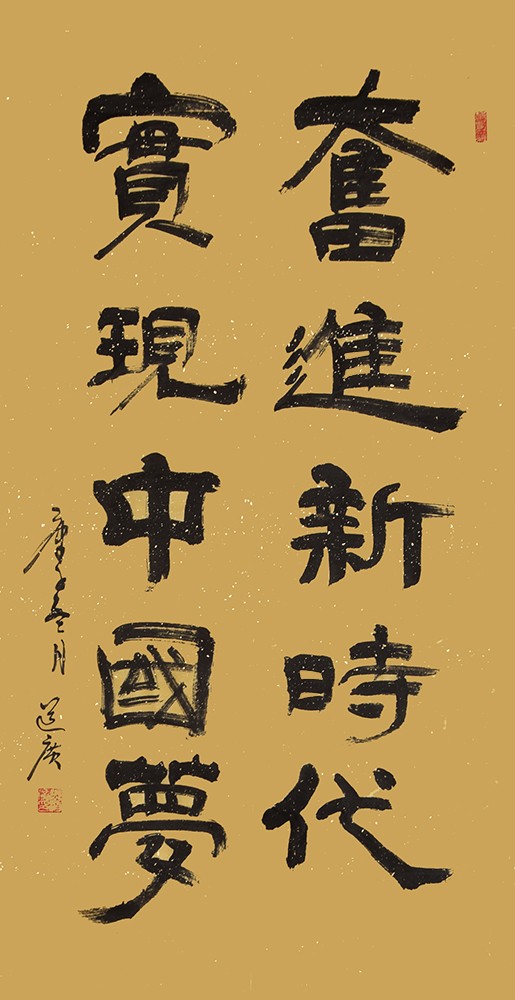 奮進新時代
實現中國夢
庚子冬月 道廣